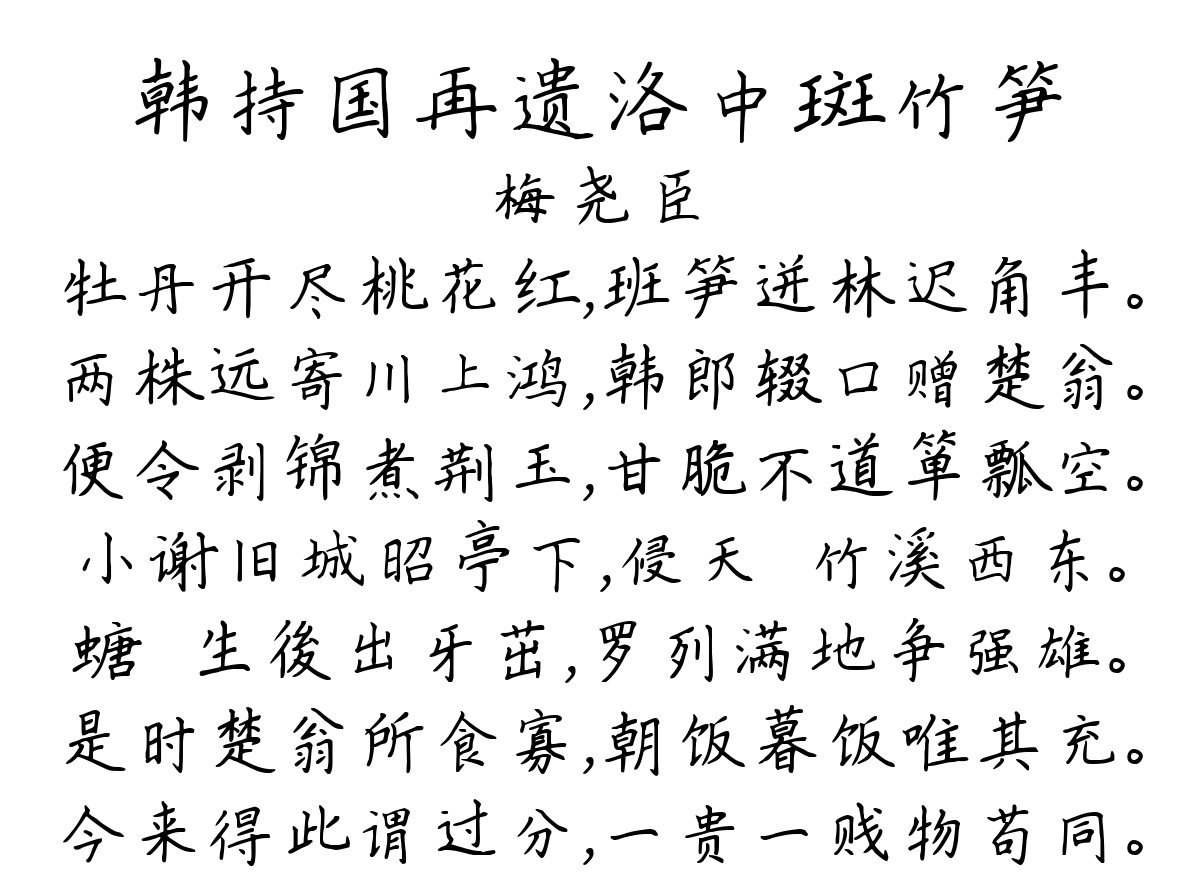 韩持国再遗洛中斑竹笋
梅尧臣
牡丹开尽桃花红,班笋迸林迟角丰。
两株远寄川上鸿,韩郎辍口赠楚翁。
便令剥锦煮荆玉,甘脆不道箪瓢空。
小谢旧城昭亭下,侵天 竹溪西东。
螗 生後出牙茁,罗列满地争强雄。
是时楚翁所食寡,朝饭暮饭唯其充。
今来得此谓过分,一贵一贱物苟同。